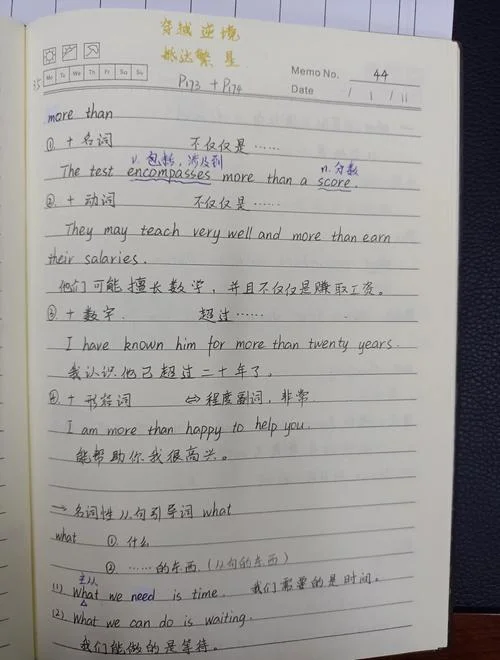 穿越逆境
抵达繁星
P173 + P174
Memo No. 44
Mo Tu We Th Fr Sa Su
Date / 1 / 11
more than
① + 名词 不仅仅是……
v. 包括, 涉及到 n. 分数
The test encompasses more than a score.
② + 动词 不仅仅是……
They may teach very well and more than earn
their salaries.
他们可能擅长数学，并且不仅仅是赚取工资。
③ + 数字. 超过……
I have known him for more than twenty years.
我认识他已超过二十年了。
④ + 形容词 ⇔ 程度副词，非常
I am more than happy to help you.
能帮助你我很高兴。
→ 名词性从句引导词 what
what ① 什么
② ……的东西.(从句的东西)
主从
(1) What we need is time. 我们需要的是时间。
(2) What we can do is waiting.
我们能做的是等待。